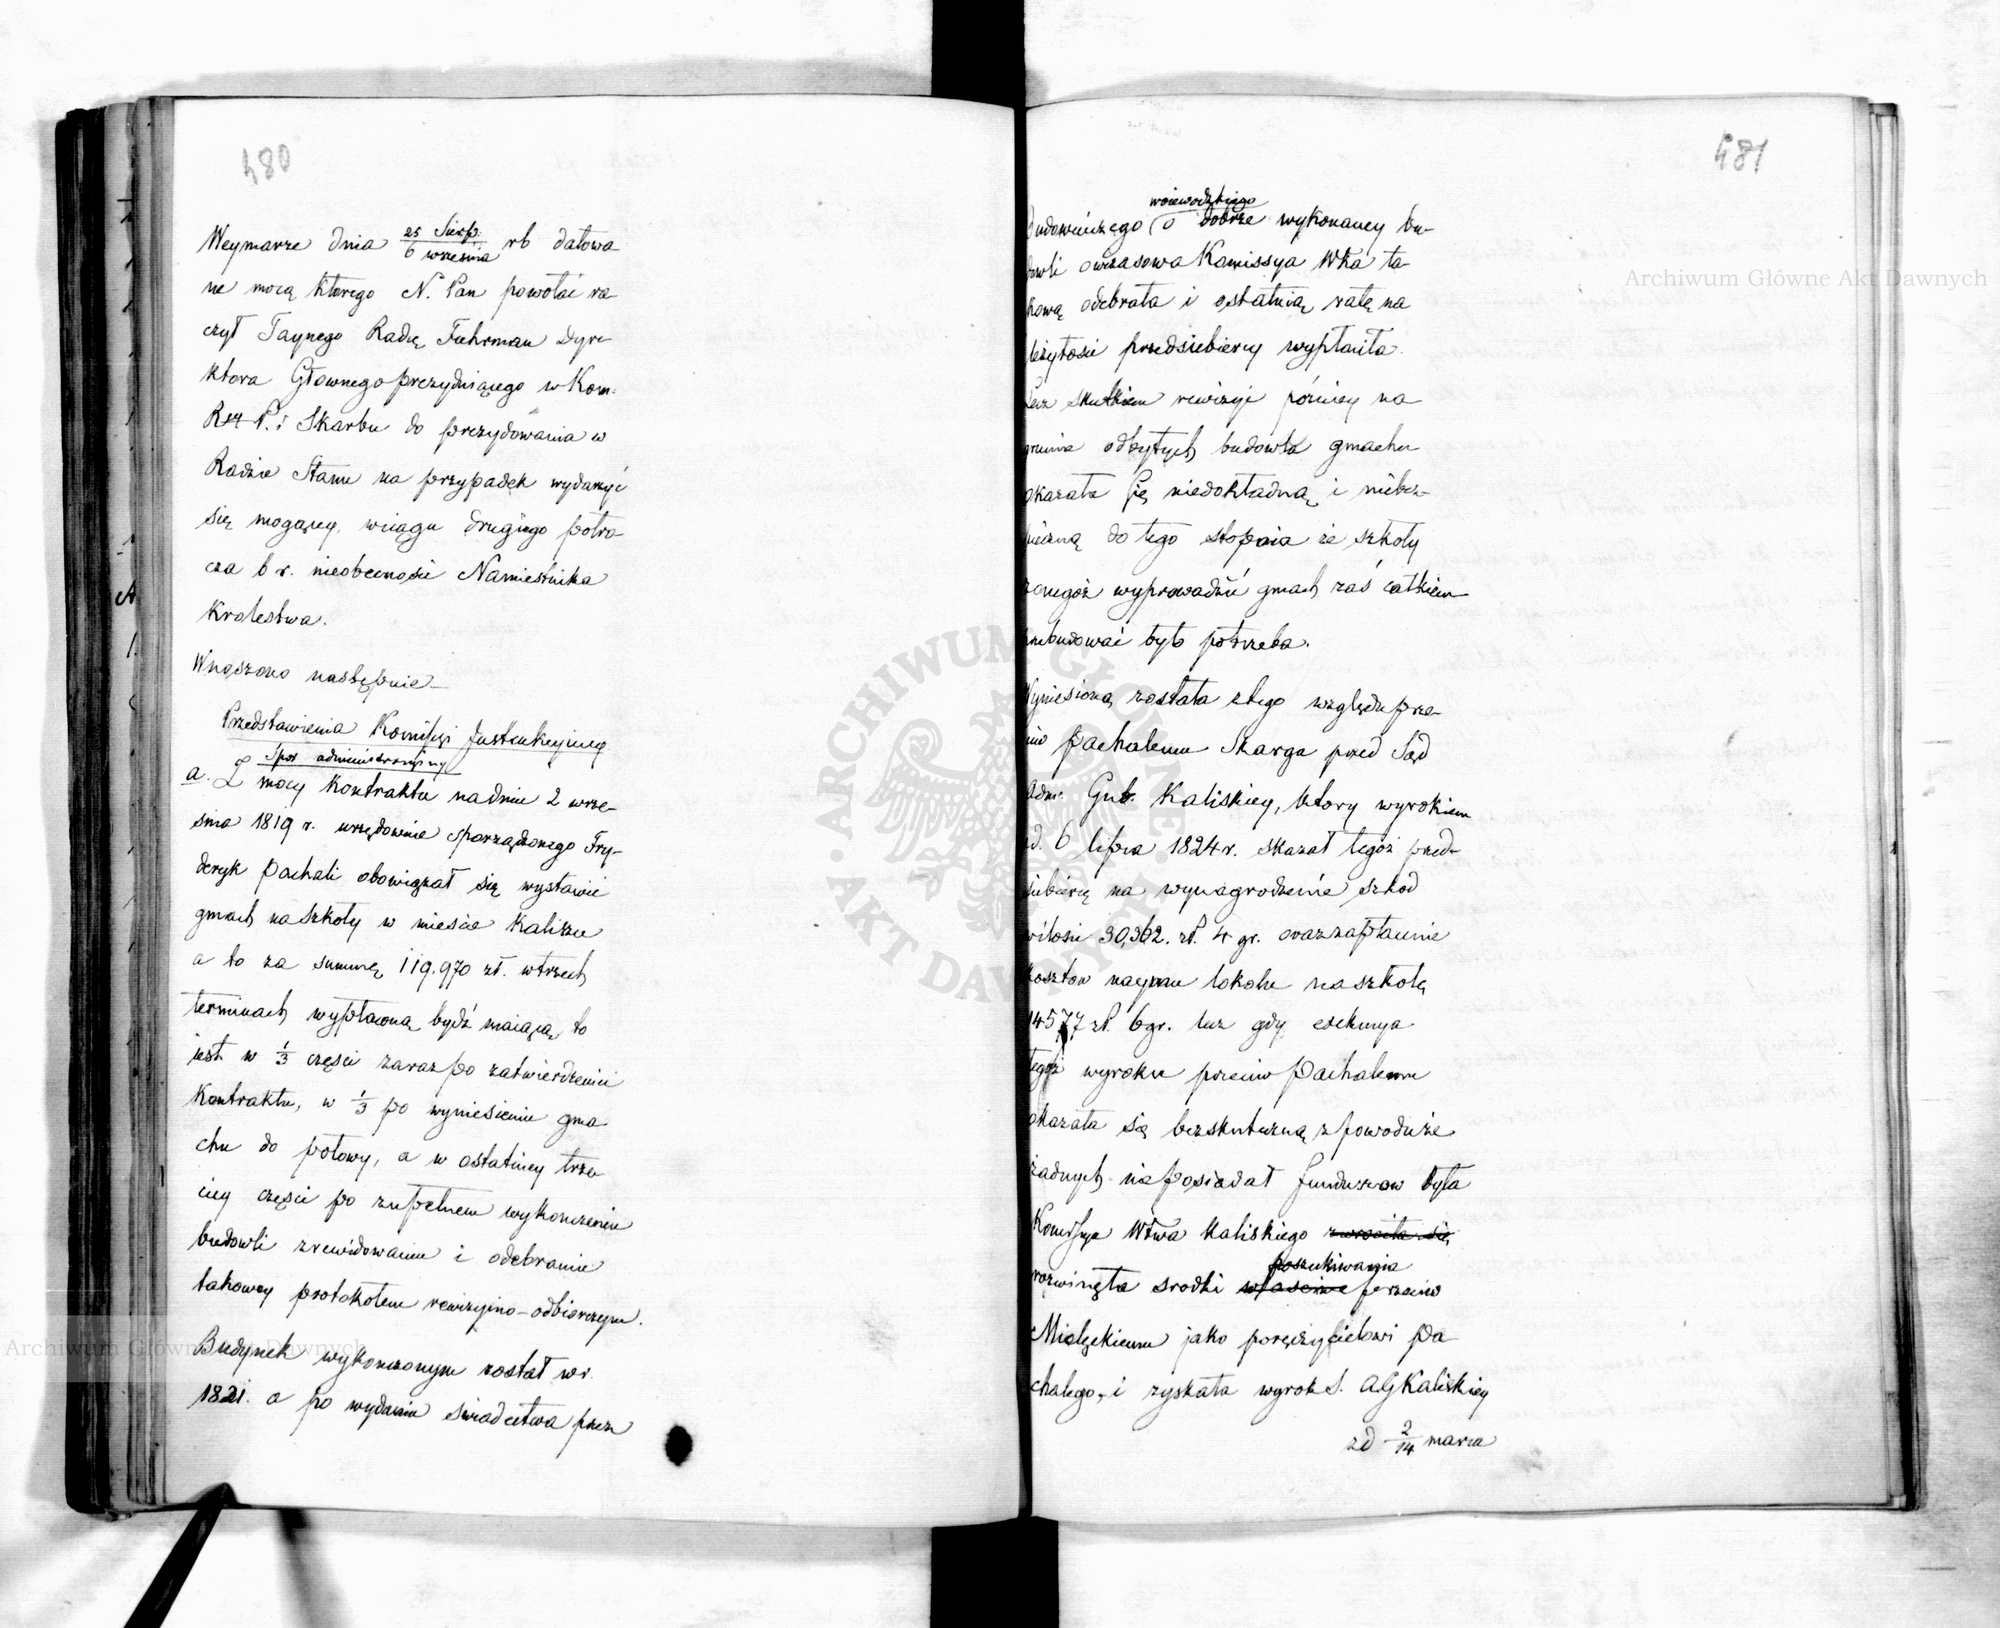 480
Weymarze dnia 25 Sierp. / 6 września rb datowa
ne mocą ktorego N. Pan powołać ra
czył Taynego Radcę Fuhrman Dyre
ktora Głownego prezyduiącego w Kom.
Rząd P. i Skarbu do prezydowania w
Radzie Stanu na przypadek wydarzyć
się mogącey, wciągu drugiego połro
cza b r. nieobecności Namiestnika
Krolestwa.
Wnoszono następnie
Przedstawienia Komissyi Instrukcyiney
Spor administracyiny
a. Z mocy Kontraktu na dniu 2 wrze-
śnia 1819 r. urzędownie sporządzonego Fry-
deryk Pachali obowiązał się wystawić
gmach na Szkoły w mieście Kaliszu
a to za summę 119.970 zł. w trzech
terminach wypłaconą bydź maiącą, to
iest w 1/3 części zaraz po zatwierdzeniu
Kontraktu, w 1/3 po wyniesieniu gma
chu do połowy, a w ostatniey trze
ciey części po zupełnem wykonczeniu
budowli zrewidowaniu i odebraniu
takowey protokołem rewizyino-odbiorczym.
Budynek wykonczonym został w r.
1821. a po wydaniu świadectwa przez
481
woiewodzkiego
Budowniczego o dobrze wykonaney bu-
dowli owczasowa Komissya Wka ta-
kową odebrała i ostatnią ratę na
leżytości przedsiebiercy wypłaciła.
Lecz skutkiem rewizyi pózniey na
gruncie odbytych budowla gmachu
okazała się niedokładną i niebez-
pieczną do tego stopnia że szkoły
z onegoż wyprowadzić gmach zaś całkiem
przebudować było potrzeba.
Wyniesioną została z tego względu prze-
ciw Pachalemu Skarga przed Sąd
Adm. Gub. Kaliskiey, ktory wyrokiem
zd. 6 lipca 1824 r. skazał tegoż przed-
siebiercę na wynagrodzenie szkod
wilości 30,362. zł. 4 gr. oraz zapłacenie
kosztow naymu lokalu na szkołę
14577 zł. 6 gr. lecz gdy exekucya
tegoż wyroku przeciw Pachalemu
okazała się bezskuteczną z powodu że
żadnych nie posiadał funduszow była
Komissya Wtwa Kaliskiego zwrociła się
poszukiwania
rozwinęła srodki własciwe przeciw
Mielęckiemu jako poręczycielowi Pa
chalego, i zyskała wyrok S. A G Kaliskiey
zd 2/14 marca